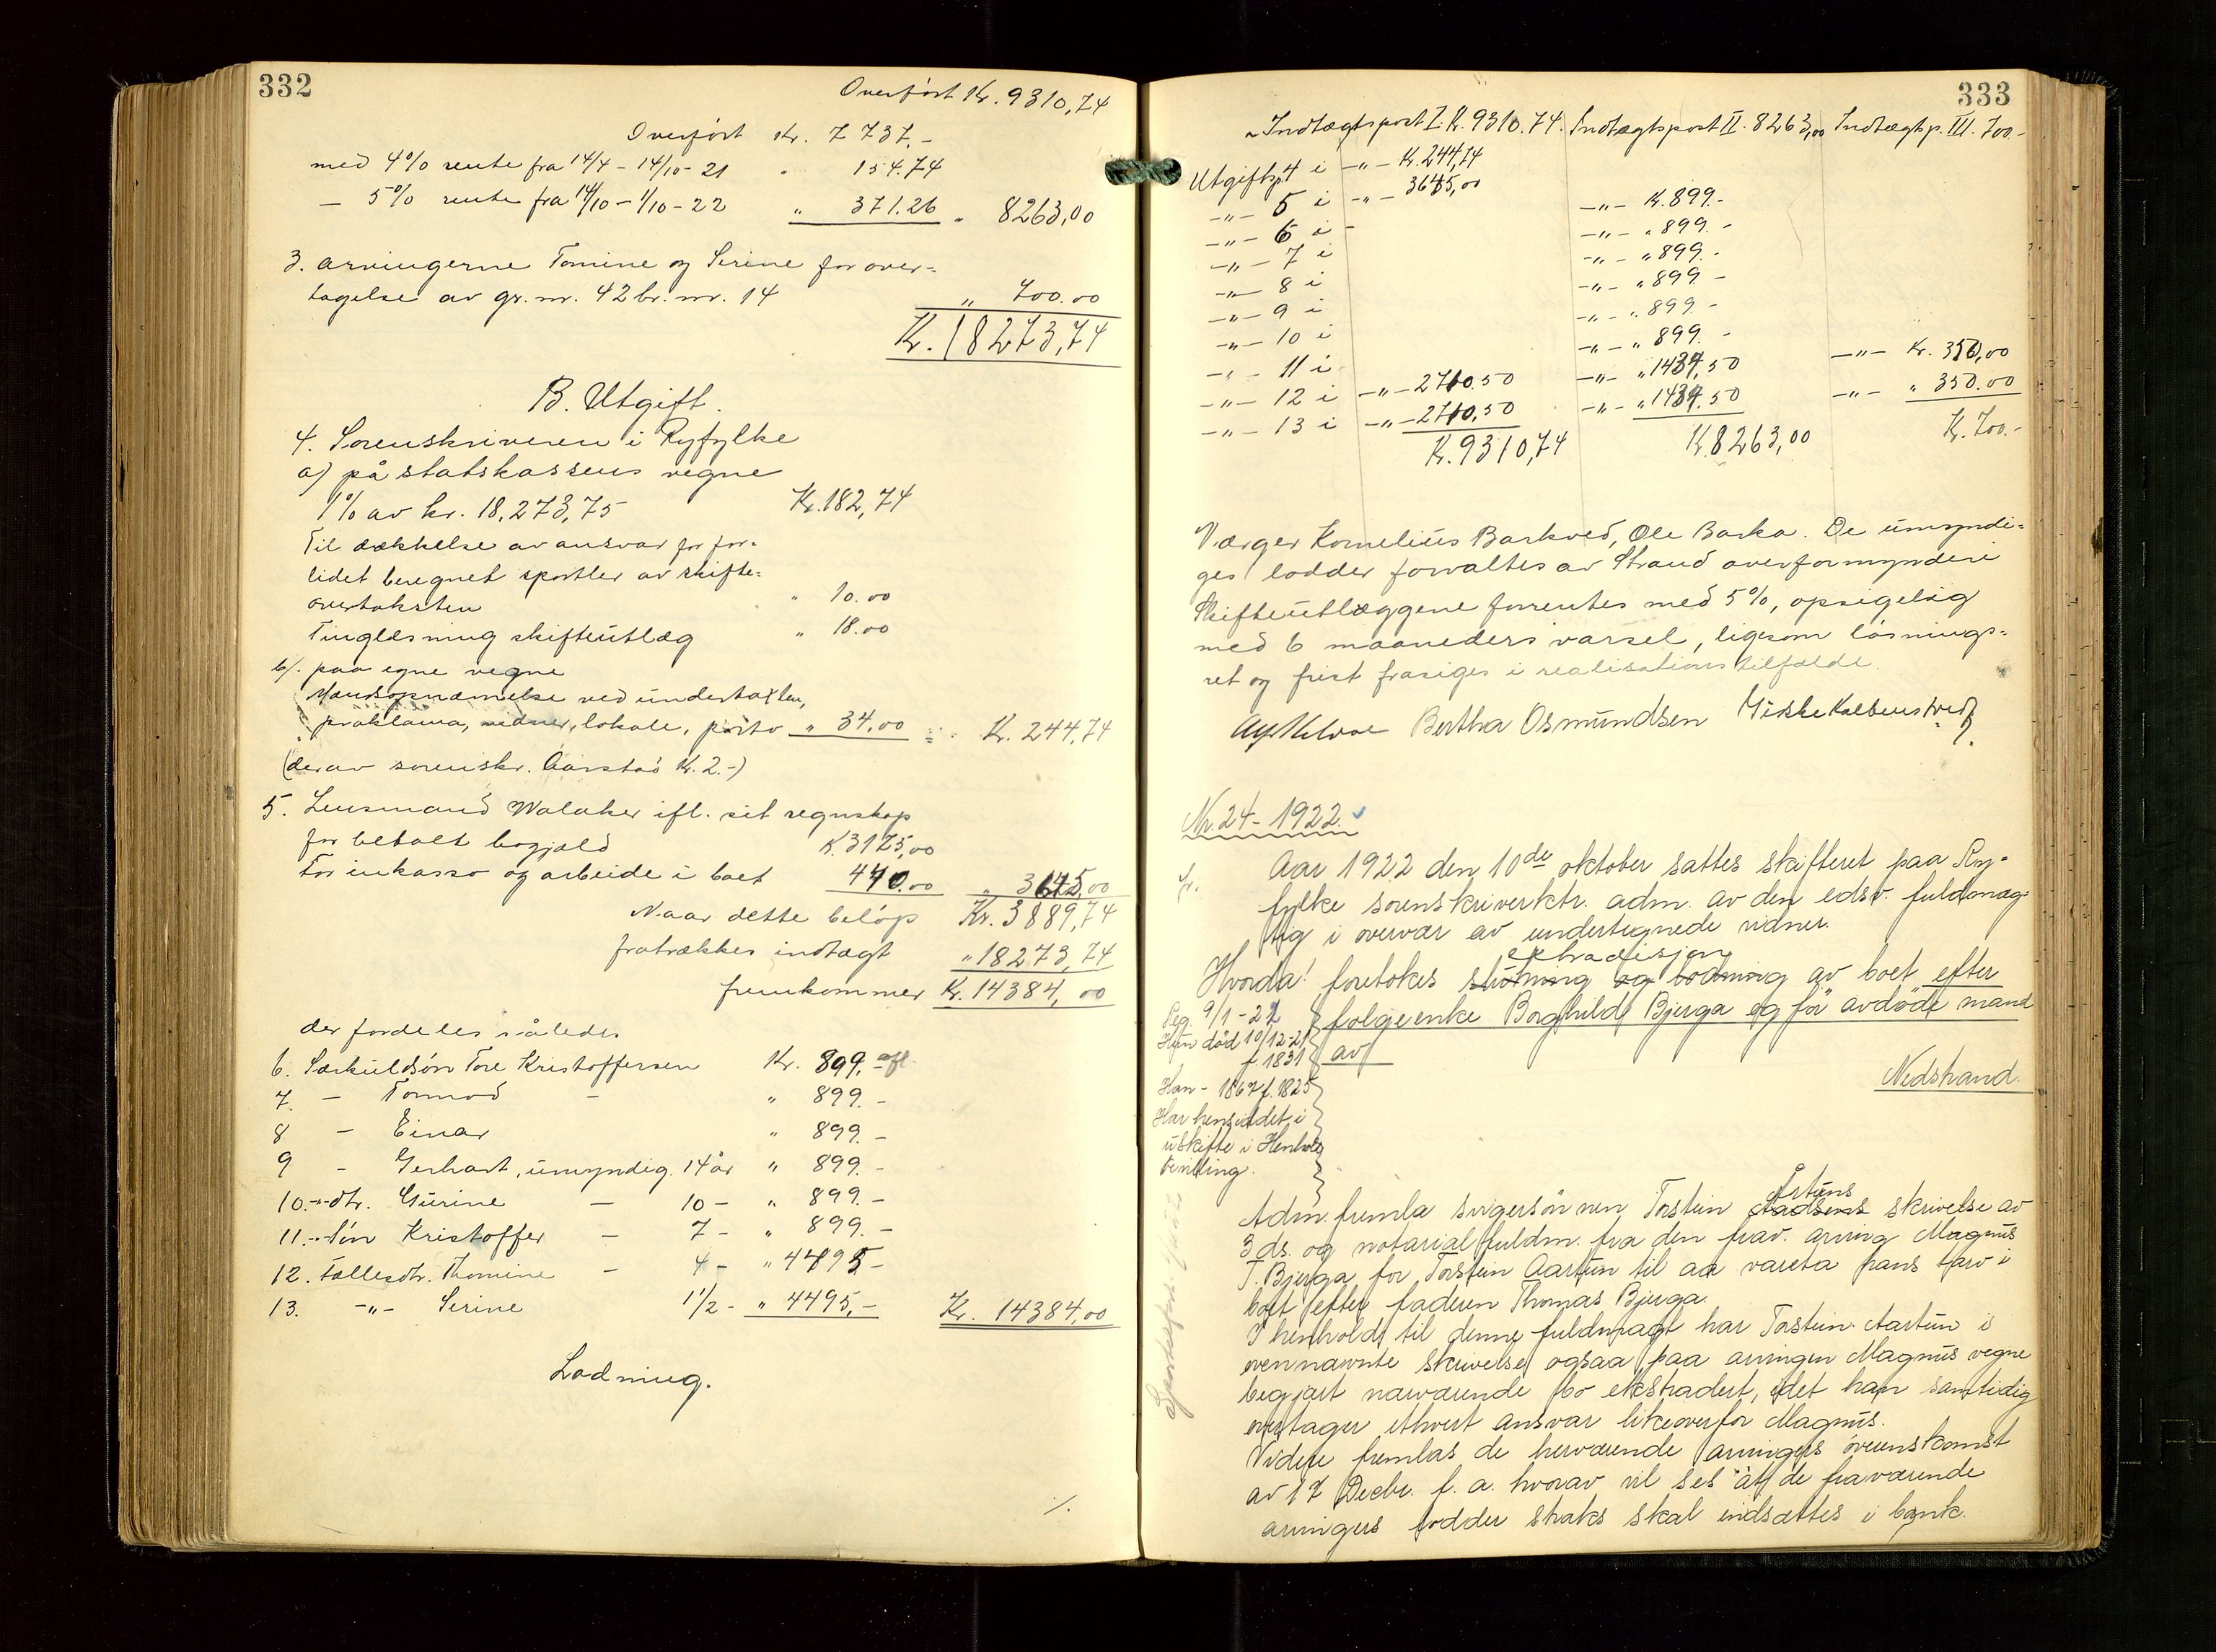 332
Overført Kr. 9310,74
Overført Kr. 7737,-
med 4% rente fra 14/4 - 14/10 - 21 " 154.74
- 5% rente fra 14/10 - 1/10 - 22 " 371.26 " 8263,00
3. arvingerne Tomine og Serine for over-
tagelse av gr. nr. 42 br. nr. 14 " 700.00
Kr. 18273,74
B. Utgift.
4. Sorenskriveren i Ryfylke
a) på statskassens vegne
1% av kr. 18,273,75 Kr. 182,74
Til dækkelse av ansvar for for-
lidet beregnet sportler av skifte-
overtaksten " 10.00
Tinglæsning skifteutlæg " 18.00
b/. paa egne vegne
Mændsopnævnelse ved undertaxten,
proklama, vidner, lokale, porto " 34,00 = Kr. 244,74
(derav sorenskr. Aarstad Kr. 2.-)
5. Lensmand Walaker ifl. sit regnskap
for betalt bogjæld K. 3175,00
For inkasso og arbeide i boet 440.00 " 3645,00
Naar dette beløp Kr. 3889,74
fratrækkes indtægt " 18273,74
fremkommer Kr. 14384,00
der fordeles således
6. Særkuldsøn Tore Kristoffersen Kr. 899.-
7. - Tormod - " 899.-
8 - Einar " 899.-
9 - Gerhart, umyndig. 14 år " 899.-
10.-"-dtr. Gurine - 10 - " 899.-
11.-"-søn Kristoffer - 7 - " 899.-
12. Fællesdtr. Thomine - 4 - " 4495-
13. -"- Serine 1 1/2 - " 4495,- Kr. 14384,00
Lodning.
./.
333
Indtægtspost I. K. 9310.74. Indtægtspost II. 8263,00 Indtægtsp. III. 700.-
Utgiftsp. 4 i -"- K. 244,74
-"- 5 i -"- 3645,00
-"- 6 i - -"- K. 899.-
-"- 7 i -"- " 899.-
-"- 8 i -"- " 899.-
-"- 9 i -"- " 899.-
-"- 10 i -"- " 899.-
-"- 11 i -"- " 899.-
-"- 12 i -"- 2710.50 -"- " 1434,50 -"- Kr. 350,00
-"- 13 i -"- 2710,50 -"- " 1434.50 -"- " 350.00
Kr. 9310,74 K. 8263,00 K. 700.-
Værger Kornelius Barkved, Ole Barka. De umyndi-
ges lodder forvaltes av Strand overformynderi
Skifteutlæggene forrentes med 5%, opsigelig
med 6 maaneders varsel, ligesom løsnings-
ret og frist frasiges i realisationstilfælde.
Bertha Osmundsen
Nr. 24 - 1922.
Aar 1922 den 10de oktober sattes skifteret paa Ry-
fylke sorenskriverktr. adm. av den edsv. fuldmæg-
tig i overvær av undertegnede vidner.
ekstradisjon
Hvorda! foretokes slutning og lodning av boet efter
folgeenke Borghild Bjerga og før avdøde mand
av
Nedstrand.
Reg 9/1 - 22
Hun död 10/12-21
f. 1831
Han - 1867 f. 1825
Har hensiddet i
uskifte i Henhold
Årtuns
Adm. fremla svigersønnen Torstein Aadsens skrivelse av
3 ds. og notarialfuldm. fra den frav. arving Magnus
T. Bjerga for Torstein Aartun til aa vareta hans tarv i
boet efter faderen Thomas Bjerga.
I henhold til denne fuldmagt har Torstein Aartun i
ovennævnte skrivelse ogsaa paa arvingen Magnus vegne
begjært nærværende bo ekstradert, idet han samtidig
overtager ethvert ansvar likeoverfor Magnus.
Videre fremlas de herværende arvingers overenskomst
av 17 Decbr. f. a. hvorav vil ses at de fraværende
arvingers lodder straks skal indsættes i bank.